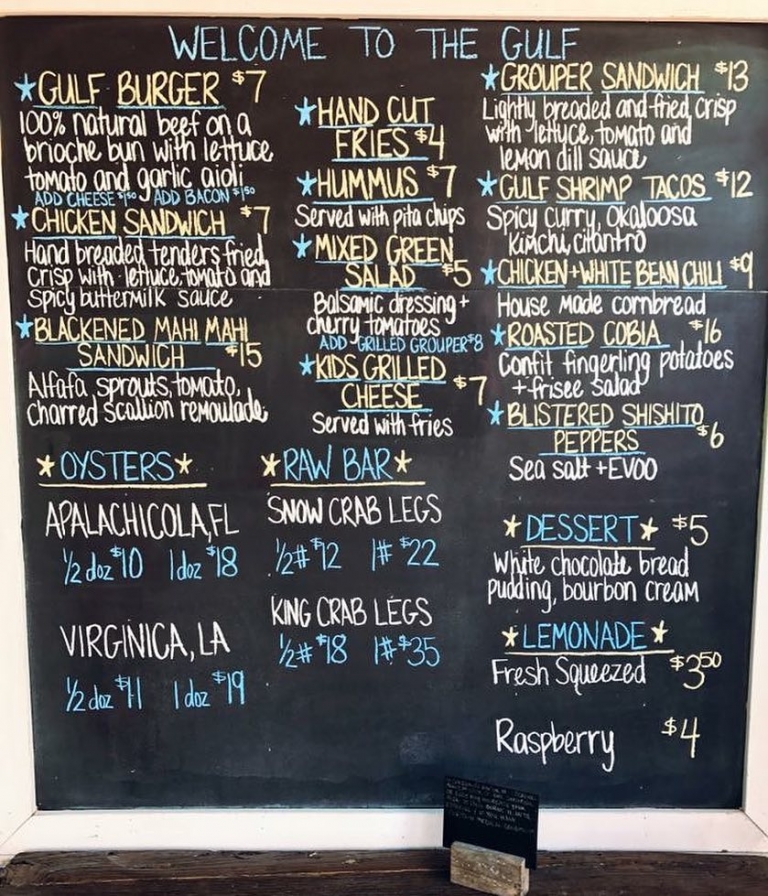 WELCOME TO THE GULF
★GULF BURGER $7
100% natural beef on a
brioche bun with lettuce
tomato and garlic aioli
ADD CHEESE $1.50 ADD BACON $1.50
★CHICKEN SANDWICH $7
Hand breaded tenders fried
crisp with lettuce, tomato and
spicy buttermilk sauce
★BLACKENED MAHI MAHI
SANDWICH $15
Alfafa sprouts, tomato,
charred scallion remoulade
★HAND CUT
FRIES $4
★HUMMUS $7
Served with pita chips
★MIXED GREEN
SALAD $5
Balsamic dressing +
cherry tomatoes
ADD GRILLED GROUPER $8
★KIDS GRILLED
CHEESE $7
Served with fries
★GROUPER SANDWICH $13
Lightly breaded and fried, crisp
with lettuce, tomato and
lemon dill sauce
★GULF SHRIMP TACOS $12
Spicy curry, Okaloosa
Kimchi, cilantro
★CHICKEN + WHITE BEAN CHILI $9
House made cornbread
★ROASTED COBIA $16
Confit fingerling potatoes
+ frisee salad
★BLISTERED SHISHITO
PEPPERS $6
Sea salt + EVOO
★OYSTERS★
APALACHICOLA, FL
1/2 doz $10 1 doz $18
VIRGINICA, LA
1/2 doz $11 1 doz $19
★RAW BAR★
SNOW CRAB LEGS
1/2# $12 1# $22
KING CRAB LEGS
1/2# $18 1# $35
★DESSERT★ $5
White chocolate bread
pudding, bourbon cream
★LEMONADE★
Fresh Squeezed $3.50
Raspberry $4